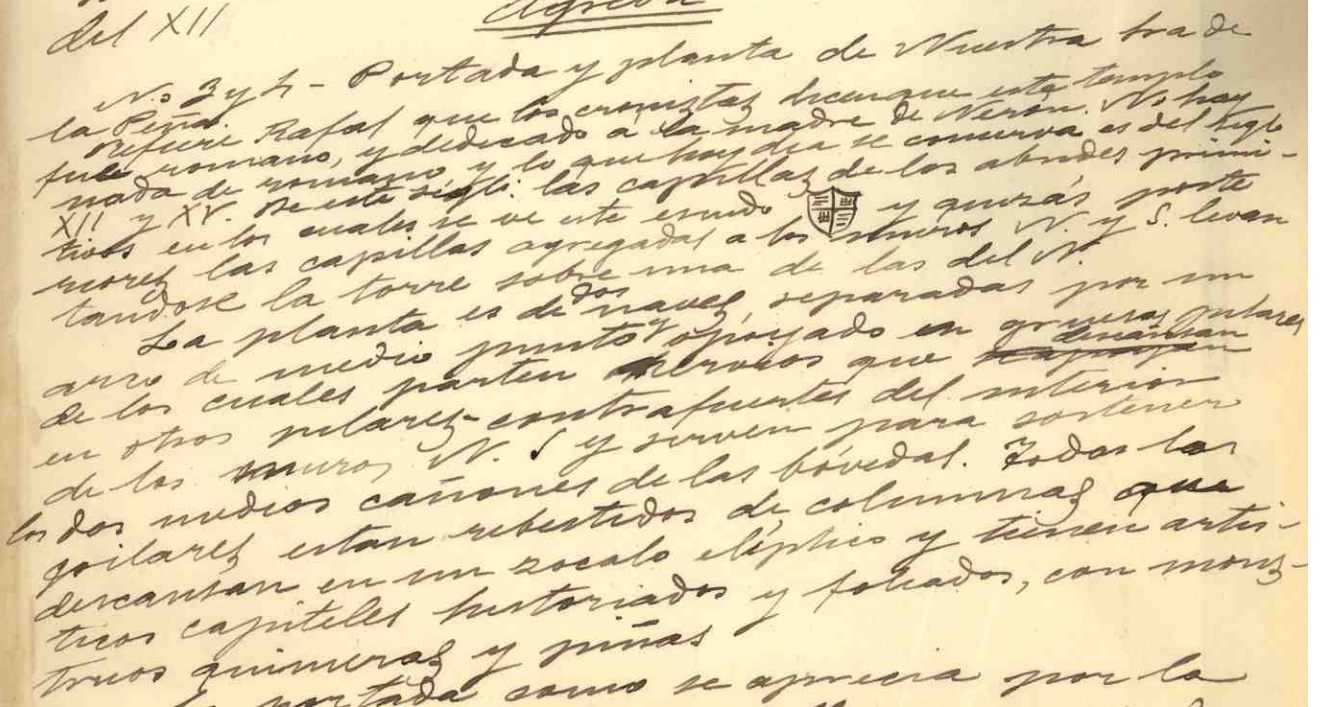 del XII
Agreda
Nº 3 y 4 - Portada y planta de Nuestra Sra de
la Peña.
Refiere Rafal que los cronistas dicen que este templo
fue romano, y dedicado a la madre de Nerón. No hay
nada de romano y lo que hoy dia se conserva es del siglo
XII y XV. De este siglo: las capillas de los absides primi-
tivos en los cuales se ve este escudo y quizás poste
riores las capillas agregadas a los muros N. y S. levan
tandose la torre sobre una de las del N.
La planta es de dos naves, separadas por un
arco de medio punto y apoyado en gruesos pilares
de los cuales parten nervios que descansan
en otros pilares-contrafuertes del interior
de los muros N. S y sirven para sostener
los dos medios cañones de las bóvedas. Todos los
pilares estan rebestidos de columnas que
descansan en un zocalo elíptico y tienen artis-
ticos capiteles historiados y foliados, con mons-
truos quimeras y piñas
portada como se aprecia por la